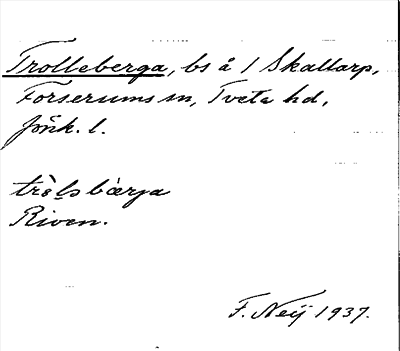 Trolleberga, bs å 1 Skallarp,
Forserums sn, Tveta hd,
Jönk. l.
trò̀lsbàrja
Riven.
F. Neij 1937.